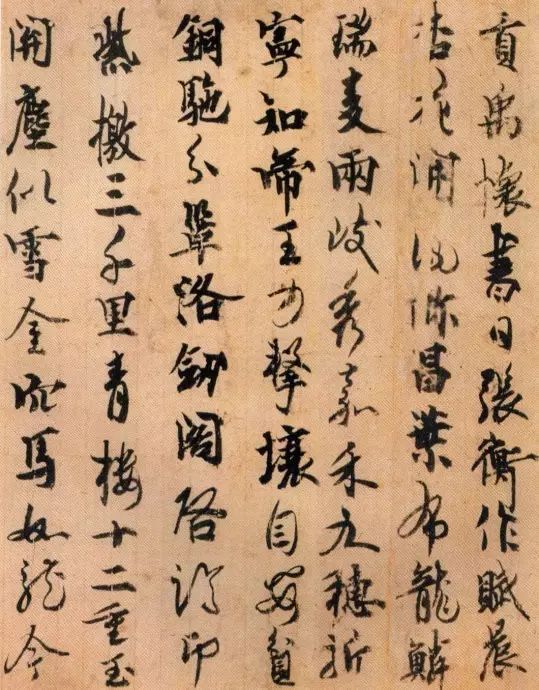 貢禹懷書日張衡作賦晨
杏花昌葉布龍鱗
瑞麥兩岐秀嘉禾九穗新
寧知帝王力擊壤自安貧
銅駝分鞏洛劍閣啓臨卭
紫徼三千里青樓十二重玉
關塵似雪金穴馬如龍今